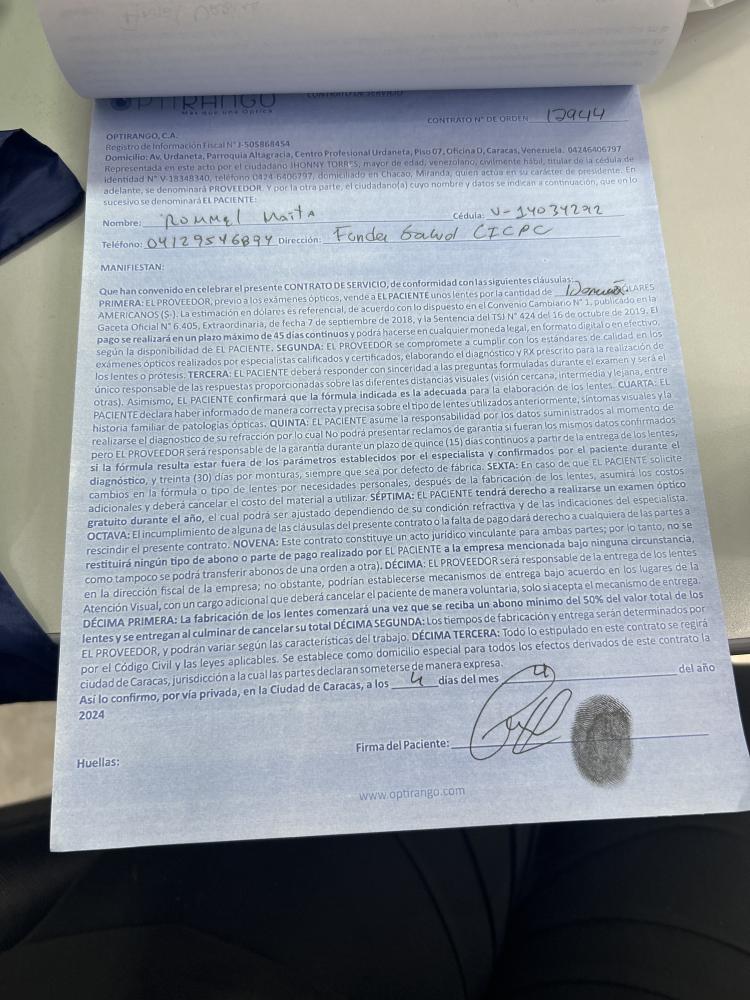 OPTIRANGO
Más que una Óptica
CONTRATO DE SERVICIO
CONTRATO N° DE ORDEN 12944
OPTIRANGO, C.A.
Registro de Información Fiscal N° J-505868454
Domicilio: Av, Urdaneta, Parroquia Altagracia, Centro Profesional Urdaneta, Piso 07, Oficina D, Caracas, Venezuela. 04246406797
Representada en este acto por el ciudadano JHONNY TORRES, mayor de edad, venezolano, civilmente hábil, titular de la cédula de
identidad N° V-18348340, teléfono 0424-6406797, domiciliado en Chacao, Miranda, quien actúa en su carácter de presidente. En
adelante, se denominará PROVEEDOR. Y por la otra parte, el ciudadano(a) cuyo nombre y datos se indican a continuación, que en lo
sucesivo se denominará EL PACIENTE:
Nombre: Rommel Maita Cédula: V-14034292
Teléfono: 04129546894 Dirección: Funda Salud CICPC
MANIFIESTAN:
Que han convenido en celebrar el presente CONTRATO DE SERVICIO, de conformidad con las siguientes cláusulas:
PRIMERA: EL PROVEEDOR, previo a los exámenes ópticos, vende a EL PACIENTE unos lentes por la cantidad de DÓLARES
AMERICANOS ($-). La estimación en dólares es referencial, de acuerdo con lo dispuesto en el Convenio Cambiario N° 1, publicado en la
Gaceta Oficial N° 6.405, Extraordinaria, de fecha 7 de septiembre de 2018, y la Sentencia del TSJ N° 424 del 16 de octubre de 2019. El
pago se realizará en un plazo máximo de 45 días continuos y podrá hacerse en cualquier moneda legal, en formato digital o en efectivo,
según la disponibilidad de EL PACIENTE. SEGUNDA: EL PROVEEDOR se compromete a cumplir con los estándares de calidad en los
exámenes ópticos realizados por especialistas calificados y certificados, elaborando el diagnóstico y RX prescrito para la realización de
los lentes o prótesis. TERCERA: EL PACIENTE deberá responder con sinceridad a las preguntas formuladas durante el examen y será el
único responsable de las respuestas proporcionadas sobre las diferentes distancias visuales (visión cercana, intermedia y lejana, entre
otras). Asimismo, EL PACIENTE confirmará que la fórmula indicada es la adecuada para la elaboración de los lentes. CUARTA: EL
PACIENTE declara haber informado de manera correcta y precisa sobre el tipo de lentes utilizados anteriormente, síntomas visuales y la
historia familiar de patologías ópticas. QUINTA: EL PACIENTE asume la responsabilidad por los datos suministrados al momento de
realizarse el diagnostico de su refracción por lo cual No podrá presentar reclamos de garantía si fueran los mismos datos confirmados
pero EL PROVEEDOR será responsable de la garantía durante un plazo de quince (15) días continuos a partir de la entrega de los lentes,
si la fórmula resulta estar fuera de los parámetros establecidos por el especialista y confirmados por el paciente durante el
diagnóstico, y treinta (30) días por monturas, siempre que sea por defecto de fábrica. SEXTA: En caso de que EL PACIENTE solicite
cambios en la fórmula o tipo de lentes por necesidades personales, después de la fabricación de los lentes, asumirá los costos
adicionales y deberá cancelar el costo del material a utilizar. SÉPTIMA: EL PACIENTE tendrá derecho a realizarse un examen óptico
gratuito durante el año, el cual podrá ser ajustado dependiendo de su condición refractiva y de las indicaciones del especialista.
OCTAVA: El incumplimiento de alguna de las cláusulas del presente contrato o la falta de pago dará derecho a cualquiera de las partes a
rescindir el presente contrato. NOVENA: Este contrato constituye un acto jurídico vinculante para ambas partes; por lo tanto, no se
restituirá ningún tipo de abono o parte de pago realizado por EL PACIENTE a la empresa mencionada bajo ninguna circunstancia,
como tampoco se podrá transferir abonos de una orden a otra). DÉCIMA: EL PROVEEDOR será responsable de la entrega de los lentes
en la dirección fiscal de la empresa; no obstante, podrían establecerse mecanismos de entrega bajo acuerdo en los lugares de la
Atención Visual, con un cargo adicional que deberá cancelar el paciente de manera voluntaria, solo si acepta el mecanismo de entrega.
DÉCIMA PRIMERA: La fabricación de los lentes comenzará una vez que se reciba un abono mínimo del 50% del valor total de los
lentes y se entregan al culminar de cancelar su total DÉCIMA SEGUNDA: Los tiempos de fabricación y entrega serán determinados por
EL PROVEEDOR, y podrán variar según las características del trabajo. DÉCIMA TERCERA: Todo lo estipulado en este contrato se regirá
por el Código Civil y las leyes aplicables. Se establece como domicilio especial para todos los efectos derivados de este contrato la
ciudad de Caracas, jurisdicción a la cual las partes declaran someterse de manera expresa.
Así lo confirmo, por vía privada, en la Ciudad de Caracas, a los 4 días del mes 4 del año
2024
Firma del Paciente:
Huellas:
www.optirango.com